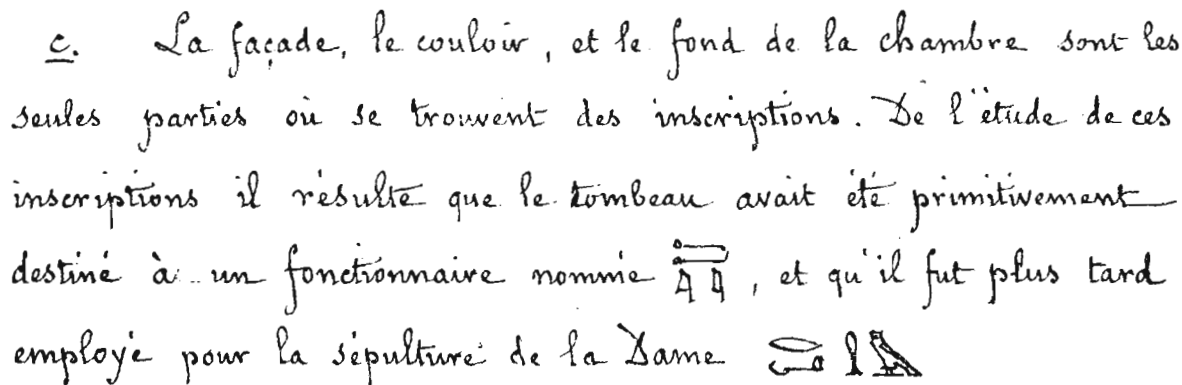 c. La façade, le couloir, et le fond de la chambre sont les
seules parties où se trouvent des inscriptions. De l'étude de ces
inscriptions il résulte que le tombeau avait été primitivement
destiné à un fonctionnaire nommé , et qu'il fut plus tard
employé pour la sépulture de la Dame